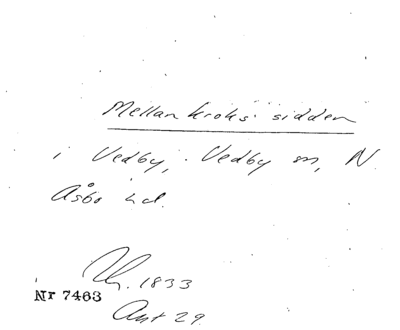 Mellan kroks sidden
i Vedby, Vedby sn, N.
Åsbo hd.
1833
Nr 7463
Akt 29.